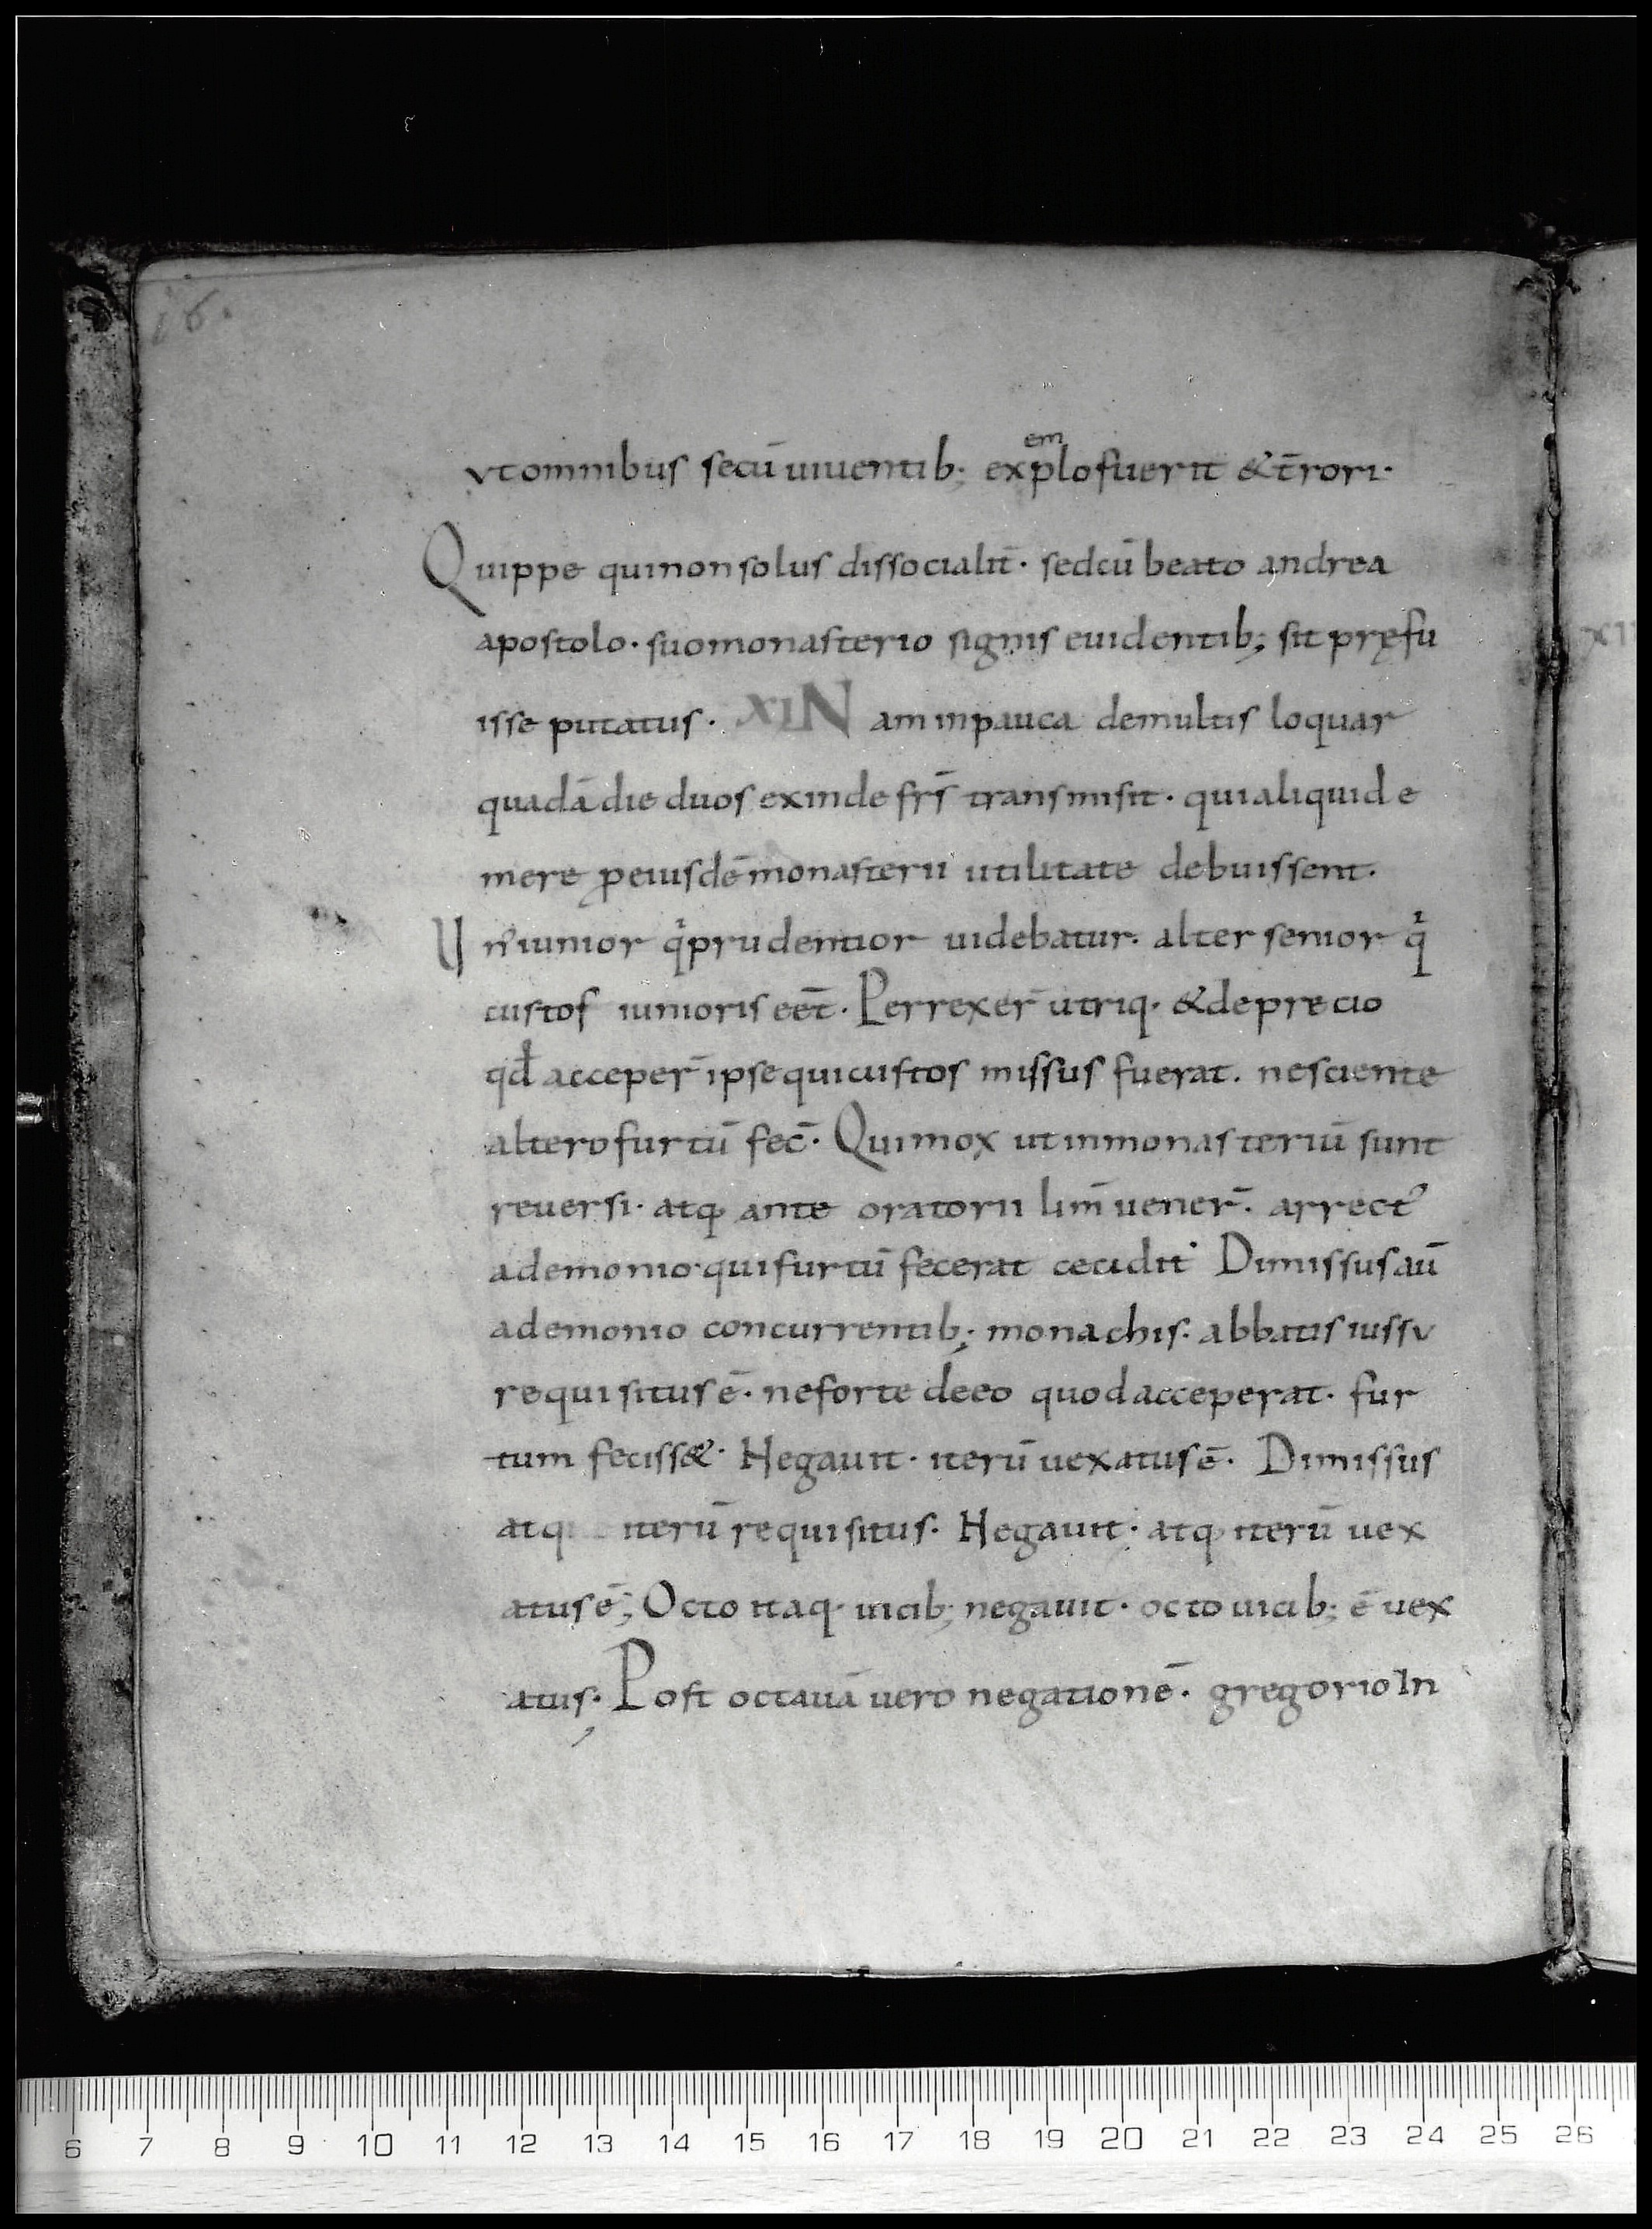 16.
vtomnibus secū uiuentib; explofuerit &t̄rori·
em
Quippe quinonsolus dissocialit̄· sedcū beato andrea
apostolo· suomonasterio signis euidentib; sit pręfu
isse putatus· XI N am inpauca demultis loquar
quadā die duos exinde frs̄ transmisit· quialiquid e
mere ꝓeiusdē monasterii utilitate debuissent·
U nꝰ iunior qͥ prudentior uidebatur· alter senior qͥ
custos iunioris eēt· Perrexer̄ utriq· &deprecio
qd̄ acceper̄ ipsequicustos missus fuerat· nesciente
alterofurtū fec̄· Quimox utinmonasteriū sunt
reuersi· atq· ante oratorii lim̄ uener̄· arrectꝰ
ademonio·quifurtū fecerat cecidit· Dimissusaū
ademonio concurrentib; monachis· abbatis iussv
requisitusē· neforte deeo quodacceperat· fur
tum feciss&· Negauit· iterū uexatusē· Dimissus
atq iterū requisitus· Negauit· atq· iterū uex
atusē; Octo itaq· uicib; negauit· octouicib; ē uex
atus· Post octauā uero negationē· gregorioIn
XII
6 7 8 9 10 11 12 13 14 15 16 17 18 19 20 21 22 23 24 25 26